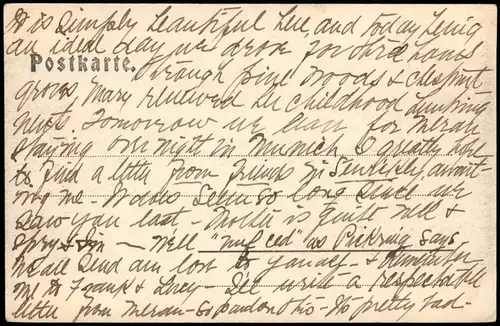 It is simply beautiful here, and today being
an ideal day we drove for three hours
Postkarte.
through pine woods & chestnut
groves Mary renewed her childhood hunting
nuts Tomorrow we leave for Meran
Staying over night in Munich. I greatly hope
to find a letter from friends await-
ing me - It does seem so long since we
saw you last - Mother is quite well &
Spry & I'm - well "puf ced" as says
We all send our love to you all - & remember
me to Frank & - I'll write a respectable
letter from Meran - So pardon this - Its pretty bad -